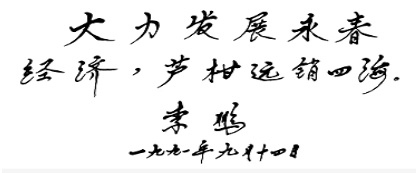 大力发展永春
经济，芦柑远销四海.
李鹏
一九九一年九月十四日